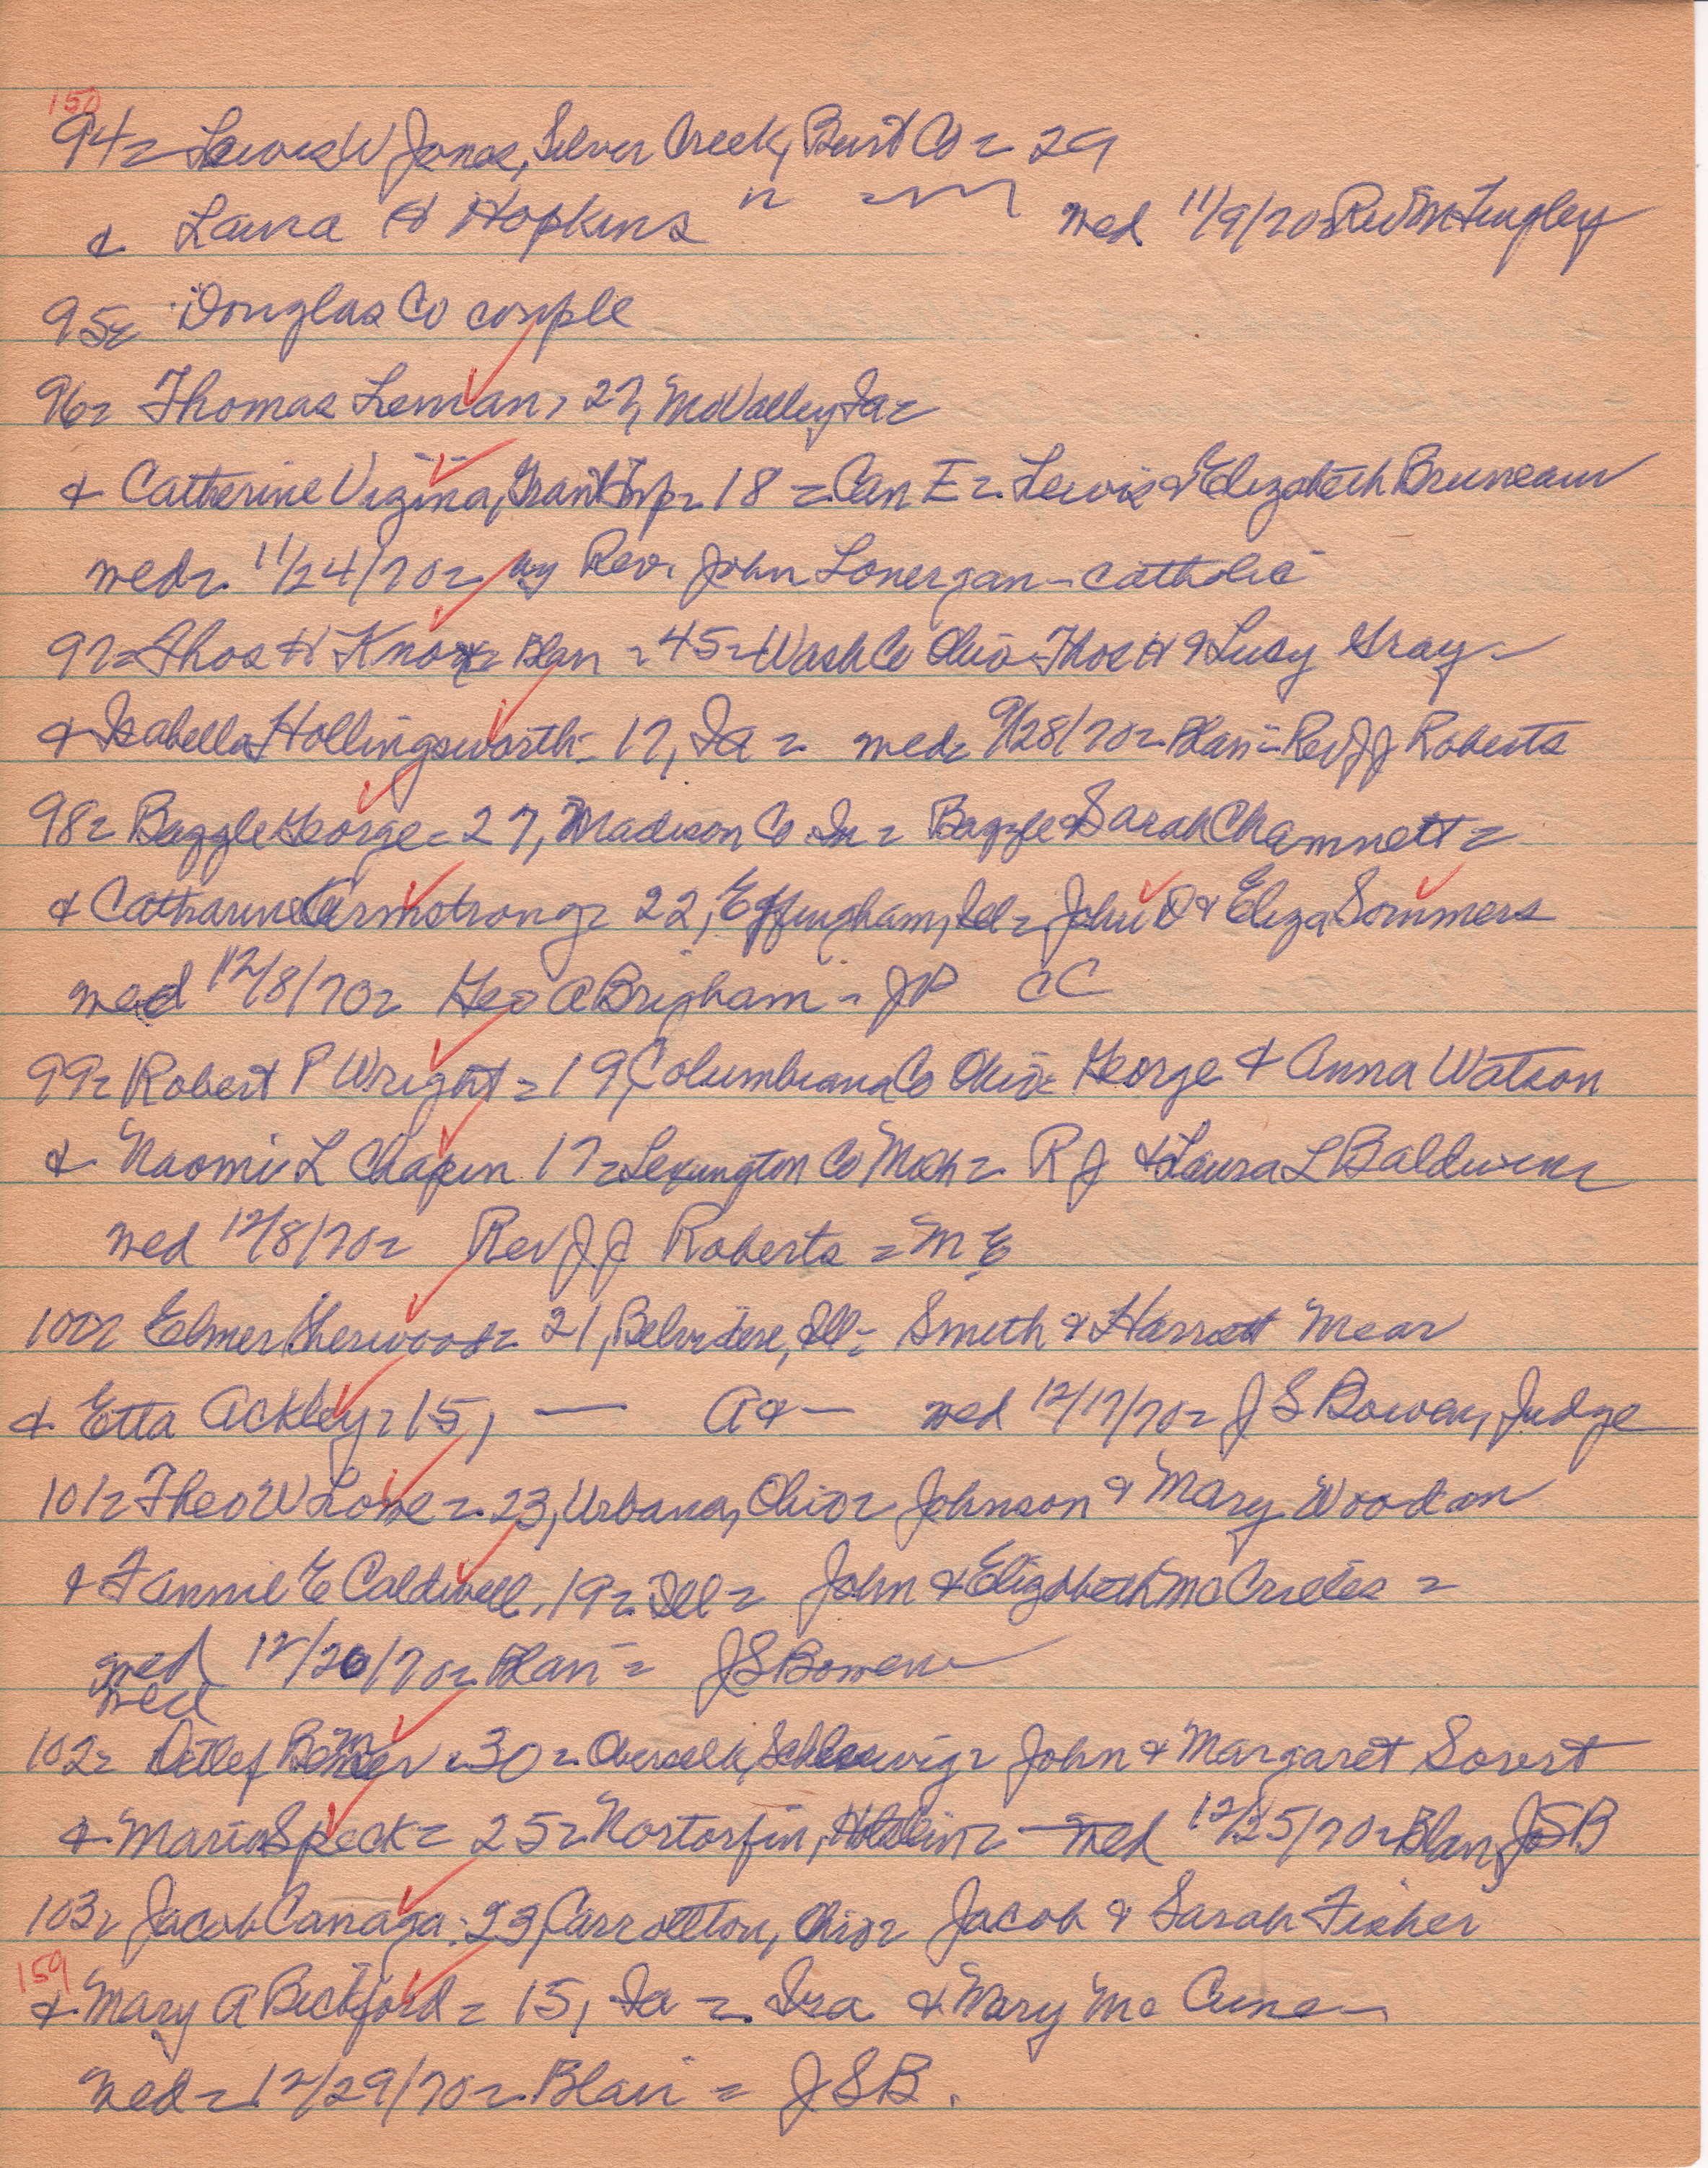 150
94= Lewis W Jones, Silver Creek, Burt Co = 29
& Laura A Hopkins " = wed 11/9/70= Rev M Tingley
95= Douglas Co couple
96= Thomas Leman, 27, Mo Valley, Ia=
& Catherine Vizina, Grant Twp= 18 = Can E= Lewis & Elizabeth Bruneau
wed= 11/24/70= by Rev. John Lonergan - Catholic
97= Thos H Knox= Blair = 45= Wash Co Ohio Thos H & Lucy Gray -
& Isabella Hollingsworth= 17, Ia = wed= 9/28/70= Blair= Rev J J Roberts
98= Bazzle George= 27, Madison Co In= Bazzle & Sarah Chamnett=
& Catharine Armstrong= 22, Effingham, Ill= John D & Eliza Sommers
wed 12/8/70= Geo A Brigham - JP CC
99= Robert P Wright = 19, Columbiana Co Ohio= George & Anna Watson
& Naomi L Chapin 17= Lexington Co Mich= R J & Laura L Baldwin=
wed 12/8/70= Rev J J Roberts = M E
100= Elmer Sherwood= 21, Belvidere, Ill= Smith & Harriett Mear
& Etta Ackley= 15, — A & — wed 12/17/70= J S Bowen, Judge
101= Theo W Lowe = 23, Urbana, Ohio= Johnson & Mary Woodan
& Fannie E Caldwell, 19= Ill= John & Elizabeth McCrilles =
wed 12/20/70= Blair = J S Bowen
wed
102= Detlef = 30= Oberselk, Schleswig= John & Margaret Sovert
& Maria Speck= 25= Nortorfin, Holstein= — wed 12/25/70= Blair, JSB
103= Jacob Canaga= 23, Carrollton, Ohio= Jacob & Sarah Fisher
159
& Mary A Beckford= 15, Ia = Ira & Mary Mc Cune -
wed= 12/29/70= Blair = J S B.